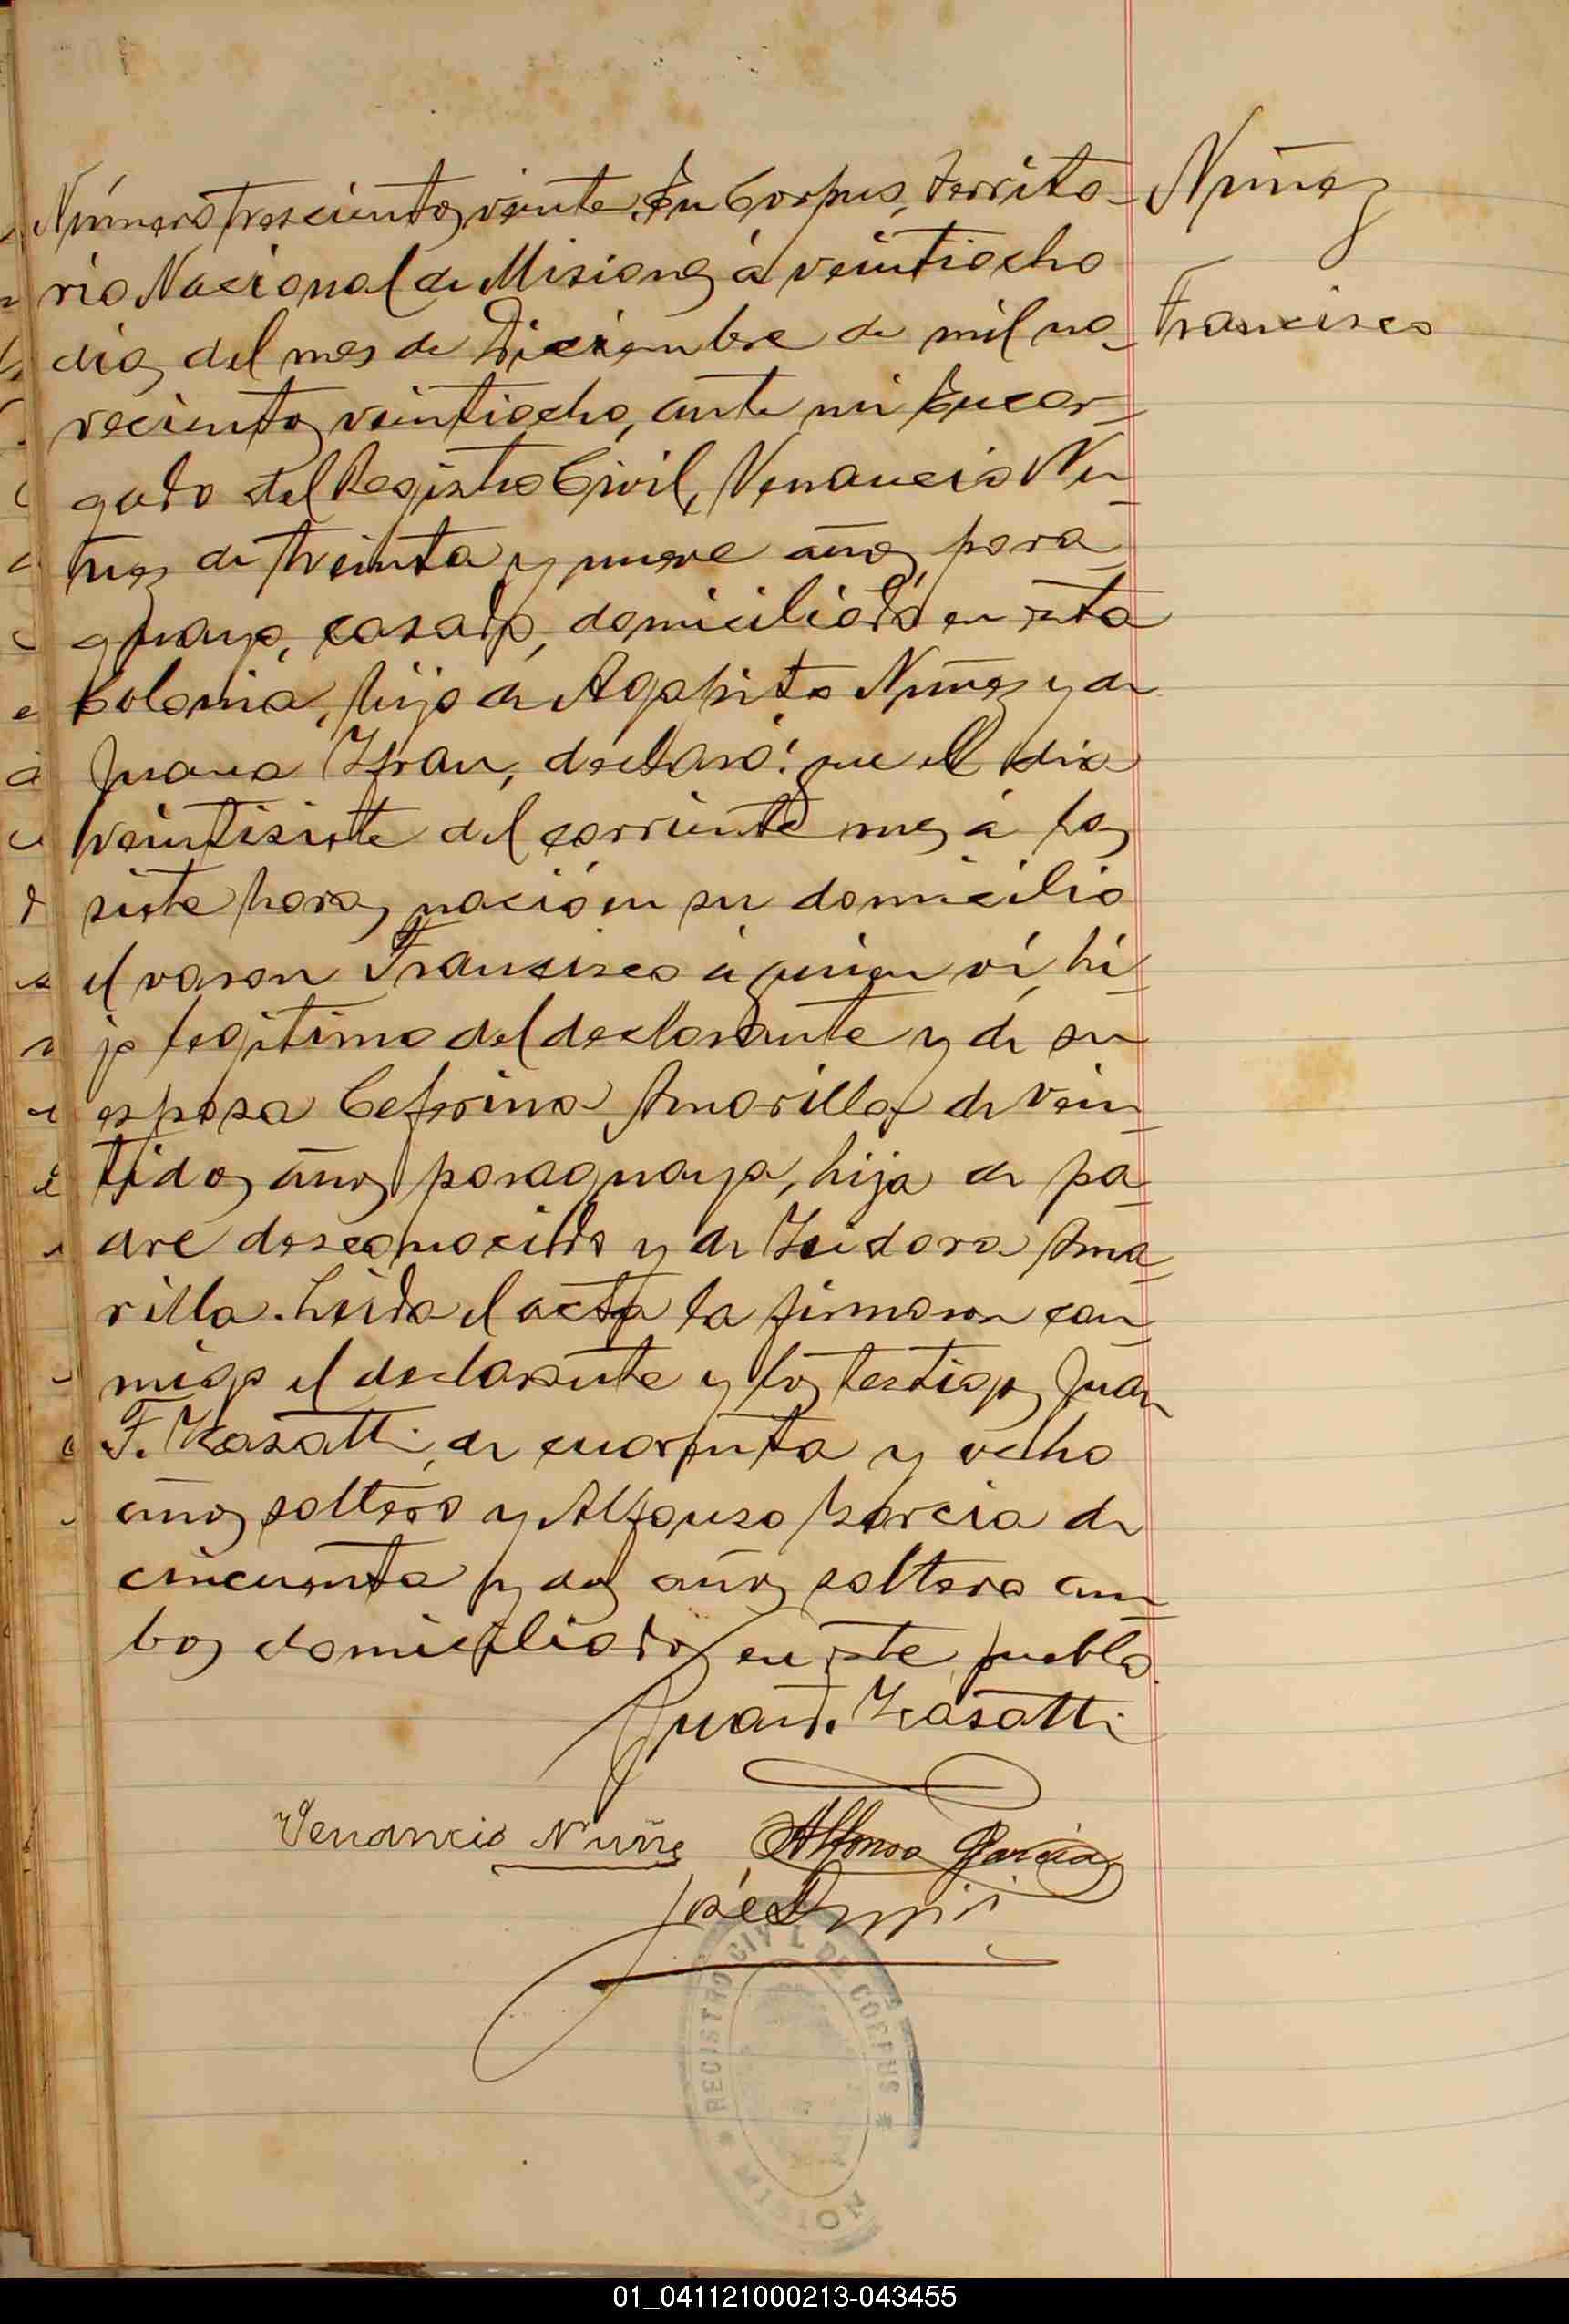 Número trescientos veinte. En Corpus, Territo-
rio Nacional de Misiones á veintiocho
dias del mes de Diciembre de mil no-
vecientos veintiocho, ante mi Encar-
gado del Registro Civil, Venancio Nu-
ñes de treinta y nueve años, para-
guayo, casado, domiciliado en esta
Colonia, hijo de Agapito Nuñes y de
Juana Ifran, declaró: que el dia
veintisiete del corriente mes á las
siete horas nació en su domicilio
el varon Francisco á quien ví, hi-
jo legitimo del declarante y de su
esposa Ceferina Amarilla, de vein-
tidos años, paraguaya, hija de pa-
dre desconocido y de Isidora Ama-
rilla. Leida el acta la firmaron con-
migo el declarante y los testigos Juan
F. Krasatti, de cuarenta y ocho
años, soltero y Alfonso Garcia de
cincuenta y dos años, soltero am-
bos domiciliados en este pueblo.
Nuñes
Francisco
Juan F.
Venancio Nuñe
Alfonso Garcia
José
REGISTRO CIVIL DE CORPUS
MISION
01_041121000213-043455